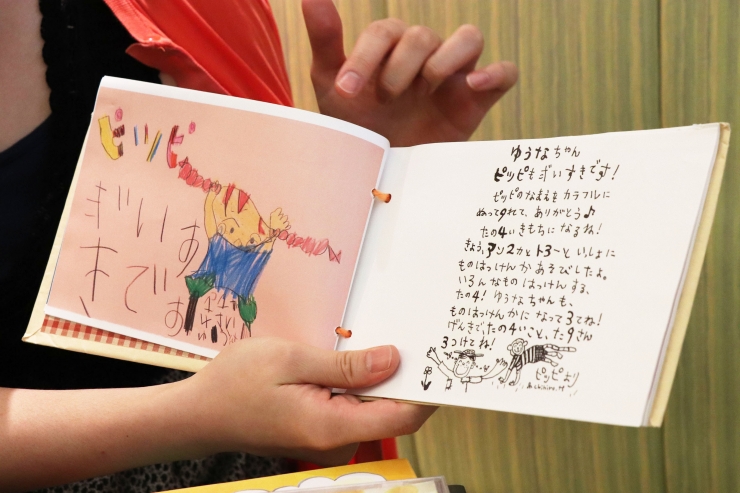 ピッピ
ぎいす
きです
4さい
ゆうなちゃん
ピッピもゴいすきです!
ピッピのなまえをカラフルに
ぬって9れて、ありがとう♪
たの4いきもちになるね!
きょう、アン2カとト3〜といっしょに
ものはっけんかあそびしたよ。
いろんなものはっけんする、
たの4! ゆうなちゃんも、
ものはっけんかになって3てね!
げんきで、たの4いこと、た9さん
3つけてね!
ピッピより